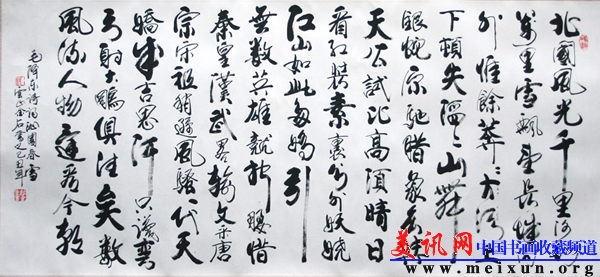 北國風光千里冰封
萬里雪飄望長城内
外惟餘莽莽大河上
下頓失滔滔山舞
銀蛇原馳蠟象欲與
天公試比高須晴日
看紅裝素裹分外妖嬈
江山如此多嬌引
無數英雄競折腰惜
秦皇漢武略輸文采唐
宗宋祖稍遜風騷一代天
驕成吉思汗只識彎
弓射大雕俱往矣數
風流人物還看今朝
毛澤東詩詞沁園春雪
金石書之己丑年
美讯网 中国书画收藏频道
www.meixun.org